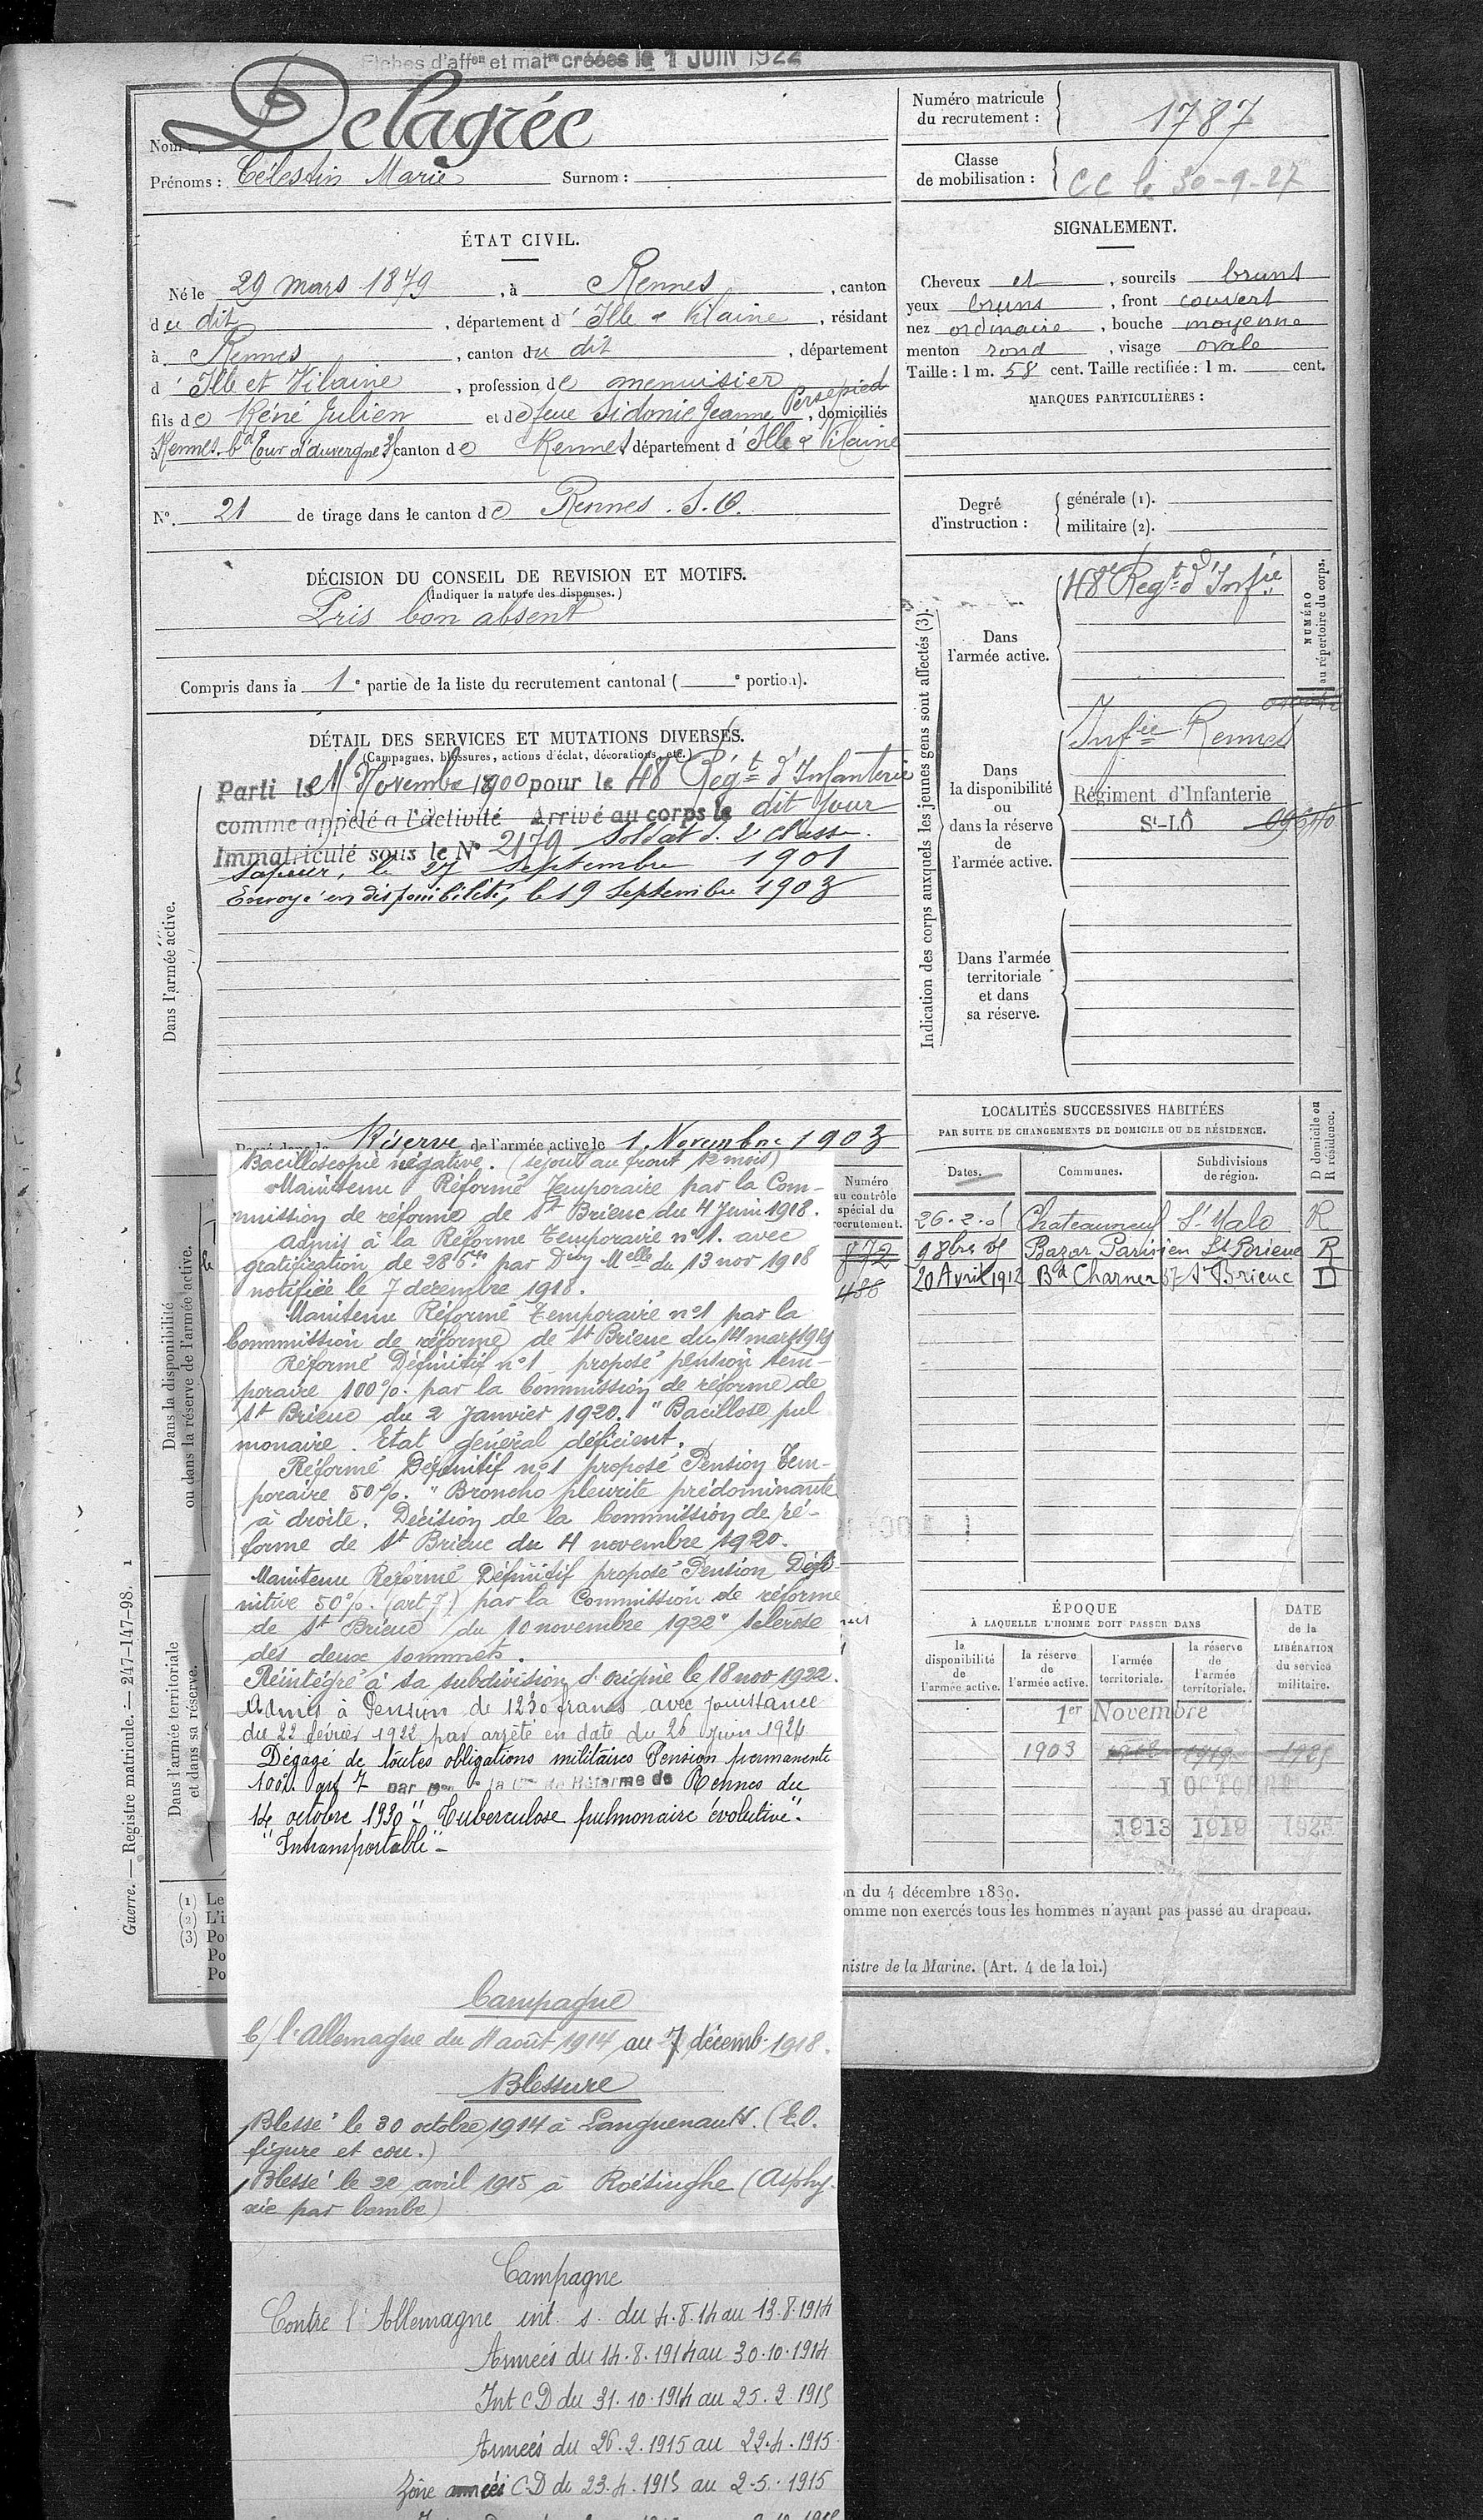 Fiches d'affon et matre créées le 1 JUIN 1922
Nom : Delagrée
Prénoms : Célestin Marie Surnom :
Numéro matricule
du recrutement : 1787
Classe
de mobilisation : CC le 30-9-27
ÉTAT CIVIL.
Né le 29 mars 1879, à Rennes, canton
du dit, département d'Ille & Vilaine, résidant
à Rennes, canton du dit, département
d'Ille et Vilaine, profession de menuisier
fils de Réné Julien et de feue Sidonie Jeanne Persepied, domiciliés
à Rennes. bd Tour d'auvergne 3 canton de Rennes département d'Ille & Vilaine
N°. 21 de tirage dans le canton de Rennes. S.O.
DÉCISION DU CONSEIL DE REVISION ET MOTIFS.
(Indiquer la nature des dispenses.)
Pris bon absent
Compris dans la 1e partie de la liste du recrutement cantonal ( e portion).
SIGNALEMENT.
Cheveux et, sourcils bruns
yeux bruns, front couvert
nez ordinaire, bouche moyenne
menton rond, visage ovale
Taille : 1 m. 58 cent. Taille rectifiée : 1 m. cent.
MARQUES PARTICULIÈRES :
Degré
d'instruction :
générale (1).
militaire (2).
Indication des corps auxquels les jeunes gens sont affectés (3).
NUMÉRO
au répertoire du corps.
Dans
l'armée active.
48e Regt d'Infie
Dans
la disponibilité
ou
dans la réserve
de
l'armée active.
Infie Rennes
Régiment d'Infanterie
St-LÔ
Dans l'armée
territoriale
et dans
sa réserve.
DÉTAIL DES SERVICES ET MUTATIONS DIVERSES.
(Campagnes, blessures, actions d'éclat, décorations, etc.)
Dans l'armée active.
Parti le 1 Novembre 1900 pour le 48e Régt d'Infanterie
comme appelé à l'activité Arrivé au corps le dit jour
Immatriculé sous le N° 2179 Soldat d. 2e classe.
Sapeur, le 27 Septembre 1901
Envoyé en disponibilité, le 19 Septembre 1903
Réserve de l'armée active le 1 Novembre 1903
Dans la disponibilité
ou dans la réserve de l'armée active.
Dans l'armée territoriale
et dans sa réserve.
Bacilloscopie négative. (séjour au front 12 mois)
Maintenu Réformé Temporaire par la Com-
mission de réforme de St Brieuc du 4 Juin 1918.
Admis à la Réforme Temporaire n°1. avec
gratification de 286 par Don Melle du 13 nov 1918
notifiée le 7 décembre 1918.
Maintenu Réformé Temporaire n°1 par la
Commission de réforme de St Brieuc du 14 mars 1919
Réformé Définitif n°1 proposé pension tem-
poraire 100%. par la Commission de réforme de
St Brieuc du 2 Janvier 1920. "Bacillose pul
monaire. Etat général déficient.
Réformé Définitif n°1 proposé Pension Tem-
poraire 50%. "Broncho pleurite prédominante
à droite. Décision de la Commission de ré-
forme de St Brieuc du 4 novembre 1920.
Maintenu Réformé Définitif proposé Pension Défi-
nitive 50%. (art 7) par la Commission de réforme
de St Brieuc du 10 novembre 1922 "Sclérose
des deux sommets.
Réintégré à sa subdivision d'origine le 18 nov 1922.
Admis à Pension de 1230 francs avec jouissance
du 22 février 1922 par arrêté en date du 26 Juin 1924
Dégagé de toutes obligations militaires Pension permanente
100% art 7 par la Con de Réforme de Rennes du
14 octobre 1930 "Tuberculose pulmonaire évolutive".
"Intransportable"-
Numéro
au contrôle
spécial du
recrutement.
872
486
LOCALITÉS SUCCESSIVES HABITÉES
PAR SUITE DE CHANGEMENTS DE DOMICILE OU DE RÉSIDENCE.
D domicile ou
R résidence.
Dates. Communes. Subdivisions
de région.
26-2-01 Chateauneuf St Malo R
9 8bre 05 Bazar Parisien St Brieuc R
20 Avril 1912 Bd Charner 67 St Brieuc D
ÉPOQUE
À LAQUELLE L'HOMME DOIT PASSER DANS
DATE
de la
LIBÉRATION
du service
militaire.
la
disponibilité
de
l'armée active.
la réserve
de
l'armée active.
l'armée
territoriale.
la réserve
de
l'armée
territoriale.
1er Novembre
1903 1919 1925
1 OCTOBRE
1913 1919 1925
Guerre. — Registre matricule. — 247-147-98. 1
(1) Le
(2) L'i
(3) Po
Po
Po
n du 4 décembre 1889.
omme non exercés tous les hommes n'ayant pas passé au drapeau.
nistre de la Marine. (Art. 4 de la loi.)
Campagne
C/ l'Allemagne du 4 août 1914 au 7 décemb. 1918.
Blessure
Blessé le 30 octobre 1914 à Langhenault. (E.O.
figure et cou.)
Blessé le 22 avril 1915 à Boësinghe (Asphy-
xie par bombe)
Campagne
Contre l'Allemagne int s. du 4.8.14 au 13.8.1914
Armées du 14.8.1914 au 30.10.1914
Int CD du 31.10.1914 au 25.2.1915
Armées du 26.2.1915 au 22.4.1915
Zone armées CD de 23.4.1915 au 2-5.1915